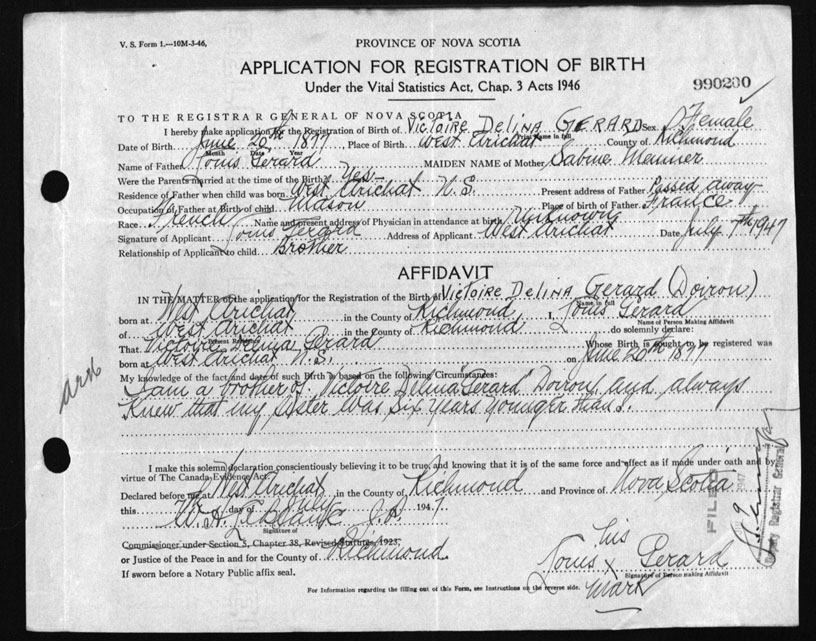 V. S. Form 1.—10M-3-46.
PROVINCE OF NOVA SCOTIA
APPLICATION FOR REGISTRATION OF BIRTH
Under the Vital Statistics Act, Chap. 3 Acts 1946
990200
TO THE REGISTRAR GENERAL OF NOVA SCOTIA
I hereby make application for the Registration of Birth of Victoire Delina GERARD Sex Female
Print Name in full
Date of Birth June 20th 1877 Place of Birth West Arichat County of Richmond
Month Date Year
Name of Father Louis Gerard MAIDEN NAME of Mother Sabine
Were the Parents married at the time of the Birth? Yes.
Residence of Father when child was born West Arichat N.S. Present address of Father Passed away
Occupation of Father at Birth of child Mason Place of birth of Father France
Race French Name and present address of Physician in attendance at birth Unknown
Signature of Applicant Louis Gerard Address of Applicant West Arichat Date July 7th 1947
Relationship of Applicant to child Brother
AFFIDAVIT
IN THE MATTER of the application for the Registration of the Birth of Victoire Delina Gerard (Doiron)
Name in full
born at West Arichat in the County of Richmond I, Louis Gerard
Name of Person Making Affidavit
of West Arichat in the County of Richmond do solemnly declare:
Present Residence
That Victoire Delina Gerard Whose Birth is sought to be registered was
born at West Arichat N.S. on June 20th 1877
My knowledge of the fact and date of such Birth is based on the following Circumstances:
I am a brother of Victoire Delina Gerard Doiron and always
Knew that my sister was six years younger than I.
I make this solemn declaration conscientiously believing it to be true, and knowing that it is of the same force and effect as if made under oath and by
virtue of The Canada Evidence Act.
Declared before me at West Arichat in the County of Richmond and Province of Nova Scotia
this 7th day of July 1947
W. A. LeBlanc J.P.
Signature of
Commissioner under Section 5, Chapter 38, Revised Statutes, 1923,
or Justice of the Peace in and for the County of Richmond
If sworn before a Notary Public affix seal.
Louis his X mark Gerard
Signature of Person making Affidavit
For Information regarding the filling out of this Form, see Instructions on the reverse side.
FILED
1947
Deputy Registrar General